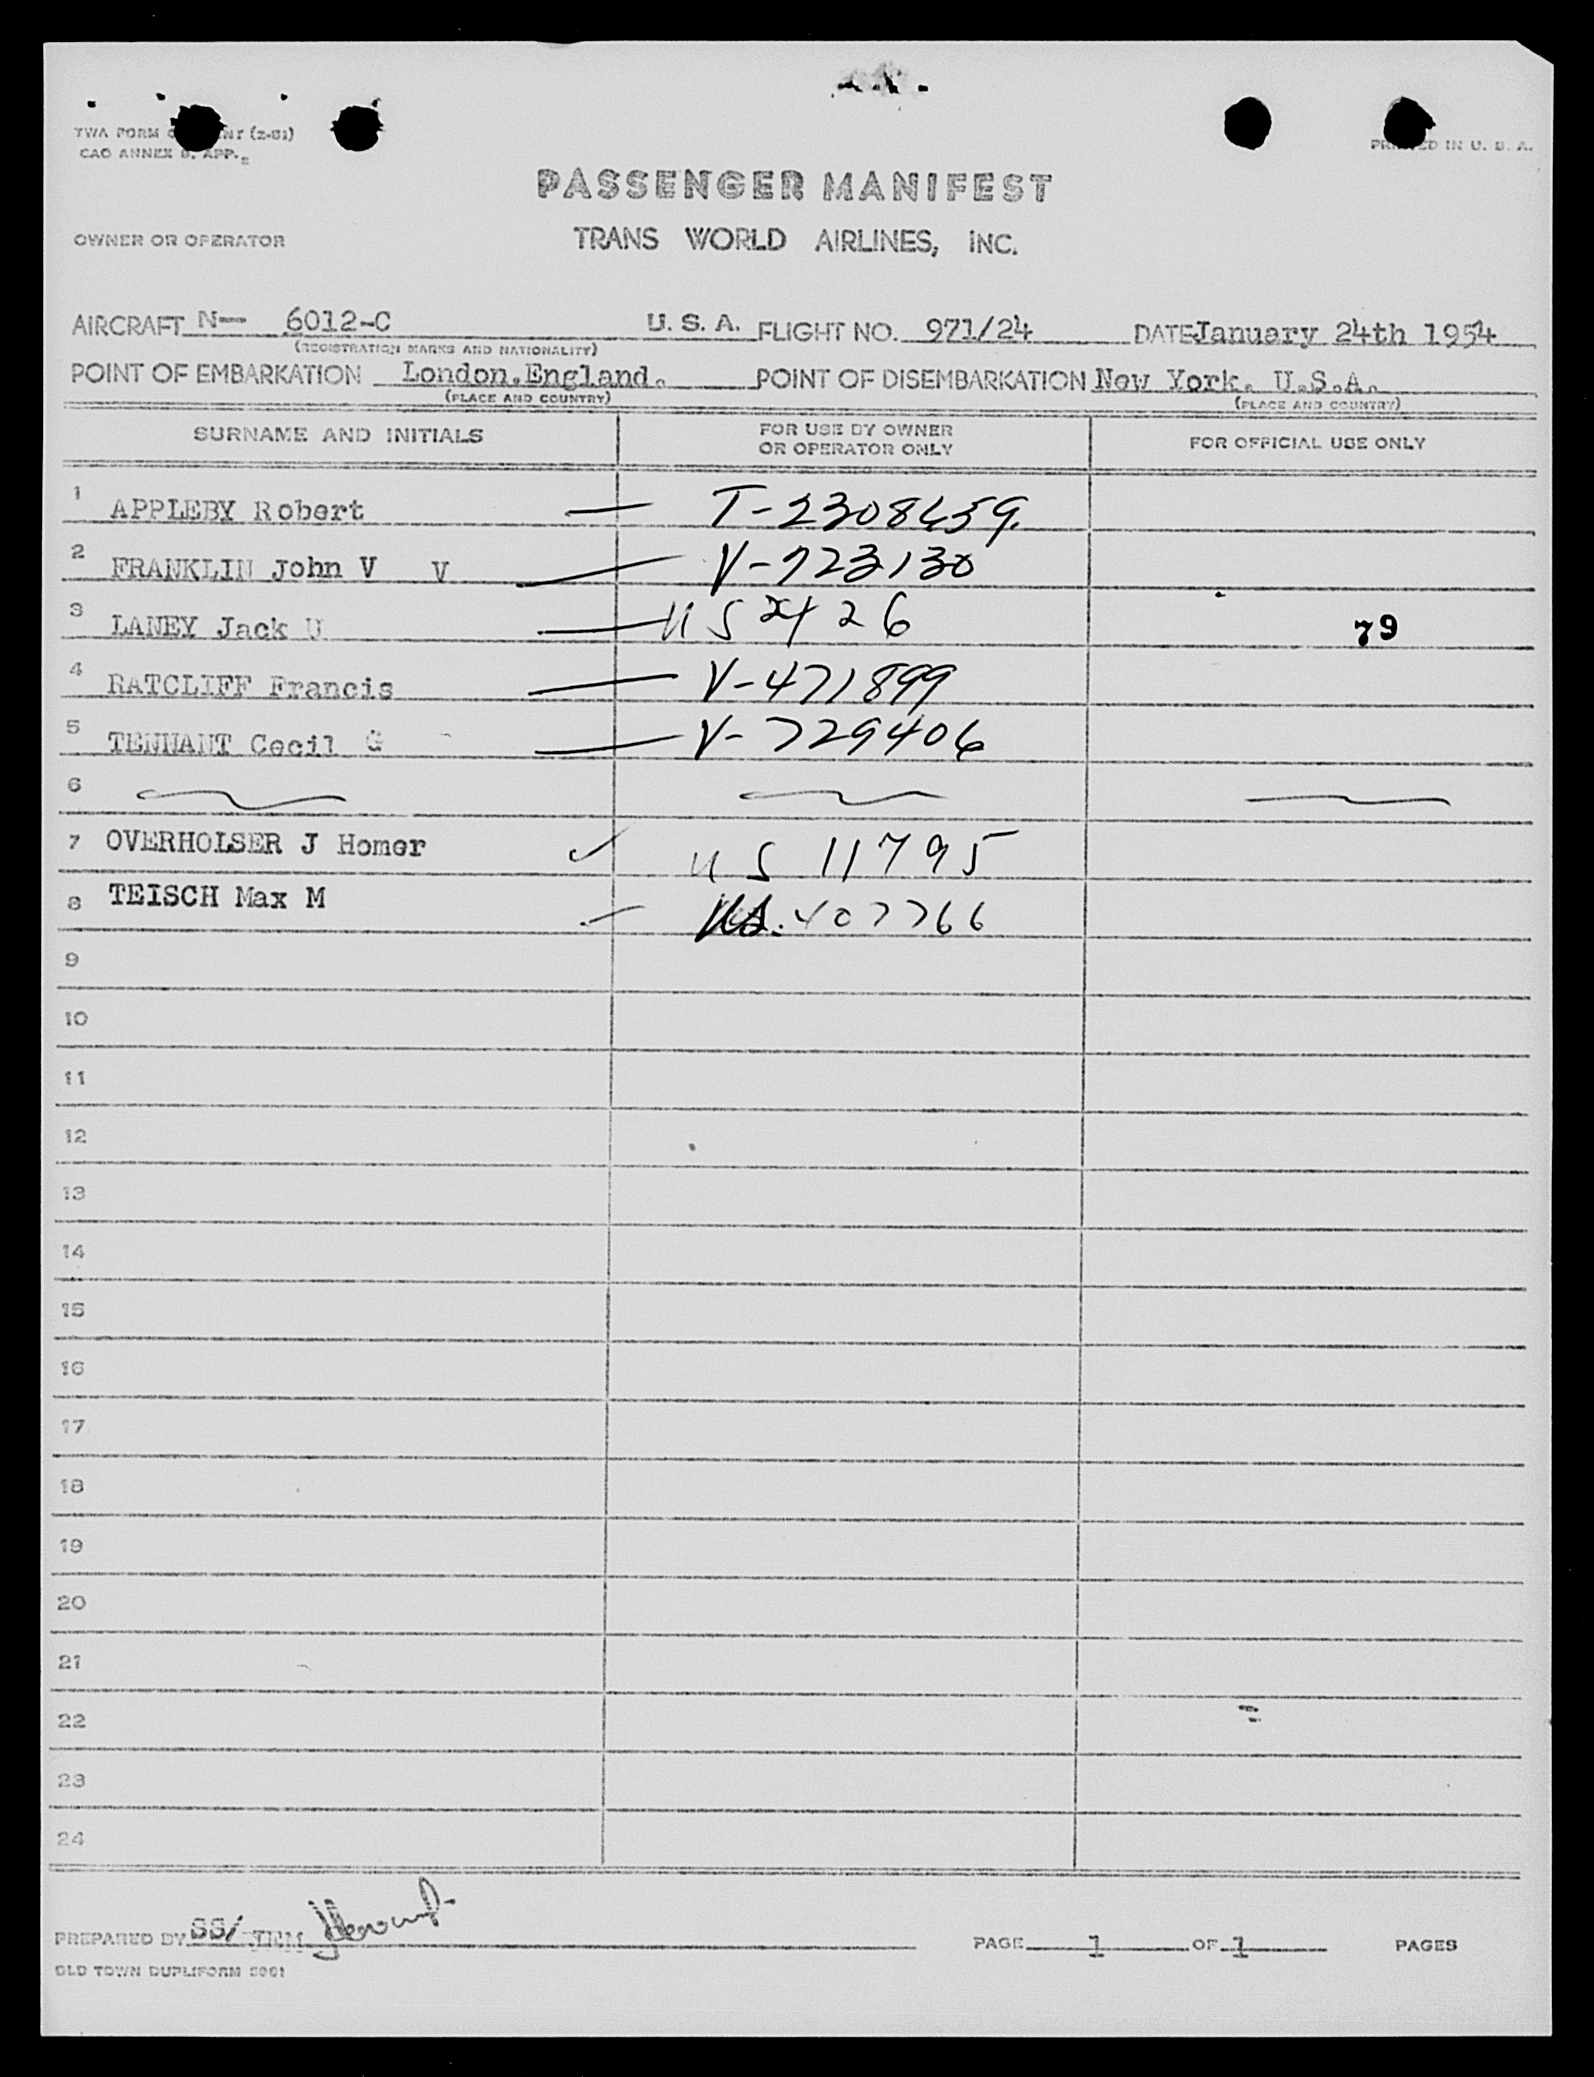 TWA FORM
(2-51)
PRINTED IN U. S. A.
CAO ANNEX 9. APP.
PASSENGER MANIFEST
OWNER OR OPERATOR
TRANS WORLD AIRLINES, INC.
AIRCRAFT N— 6012-C U. S. A. FLIGHT NO. 971/24 DATE January 24th 1954
(REGISTRATION MARKS AND NATIONALITY)
POINT OF EMBARKATION London.England. POINT OF DISEMBARKATION New York. U.S.A.
(PLACE AND COUNTRY) (PLACE AND COUNTRY)
SURNAME AND INITIALS FOR USE BY OWNER OR OPERATOR ONLY FOR OFFICIAL USE ONLY
1 APPLEBY Robert — T-2308659.
2 FRANKLIN John V V — V-723130
3 LANEY Jack U — US 2426 79
4 RATCLIFF Francis — V-471899
5 TENNANT Cecil G — V-729406
6
7 OVERHOLSER J Homer ✓ US 11795
8 TEISCH Max M US. 407766
9
10
11
12
13
14
15
16
17
18
19
20
21
22
23
24
PREPARED BY SS/ JEM PAGE 1 OF 1 PAGES
OLD TOWN DUPLIFORM